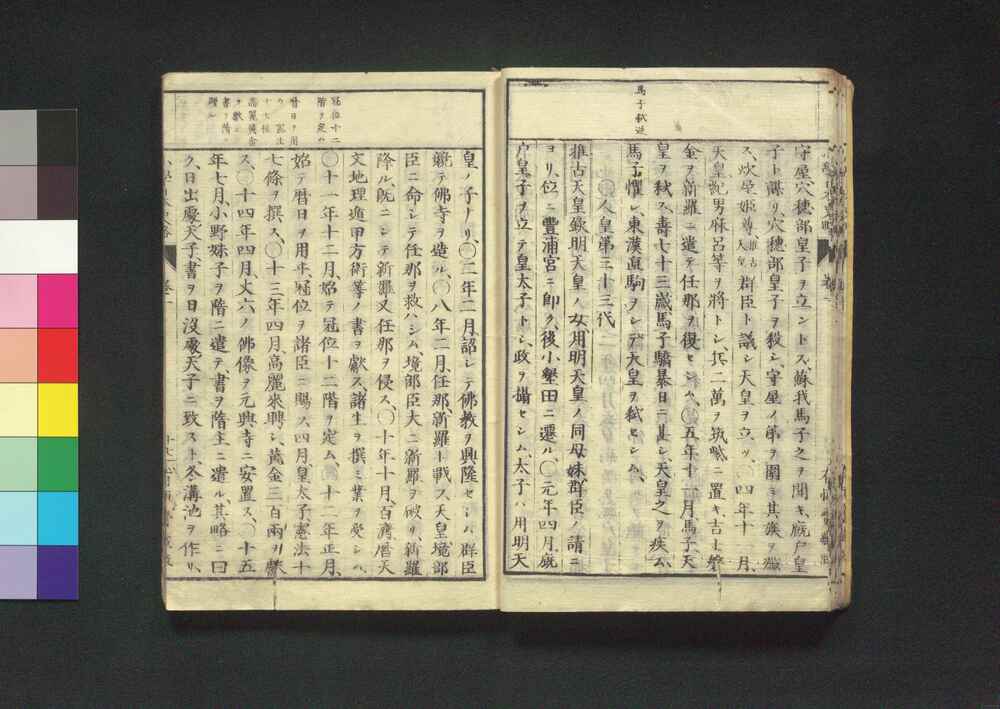 馬子弑逆
守屋穴穗部皇子ヲ立ントス、蘇我馬子之ヲ聞キ、厩戸皇
子ト謀リ穴穗部皇子ヲ殺シ守屋ノ第ヲ圍ミ其族ヲ殲
ス、炊屋姫尊推古天皇群臣ト議シ天皇ヲ立ツ、四年十月、
天皇紀男麻呂等ヲ將トシ、兵二萬ヲ筑紫ニ置キ、吉士磐
金ヲ新羅ニ遣テ任那ヲ復セシム、〇五年十一月、馬子天
皇ヲ弑ス壽七十三歳馬子驕暴日ニ甚シ、天皇之ヲ疾ム、
馬子懼レ、東漢直駒ヲシテ天皇ヲ弑セシム、
〇人皇第三十三代
推古天皇欽明天皇ノ女用明天皇ノ同母妹群臣ノ請ニ
ヨリ、位ニ豐浦宮ニ即ク、後小墾田ニ遷ル、〇元年四月、厩
戸皇子ヲ立テ皇太子トシ、政ヲ攝セシム、太子ハ用明天
皇ノ子ナリ、〇二年二月、詔シテ佛教ヲ興隆セシム群臣
競テ佛寺ヲ造ル、〇八年二月、任那、新羅ト戰フ、天皇境部
臣ニ命シテ任那ヲ救ハシム、境部臣大ニ新羅ヲ破リ、新羅
降ル、既ニシテ新羅又任那ヲ侵ス、〇十年十月、百濟曆天
文地理遁甲方術等ノ書ヲ獻ス、諸生ヲ撰ミ業ヲ受シム、
〇十一年十二月、始テ冠位十二階ヲ定ム、〇十二年正月、
始テ曆日ヲ用ヰ、冠位ヲ諸臣ニ賜フ、四月、皇太子、憲法十
七條ヲ撰ス、〇十三年四月、高麗來聘シ、黄金三百兩ヲ獻
ス、〇十四年四月、丈六ノ佛像ヲ元興寺ニ安置ス、〇十五
年七月、小野妹子ヲ隋ニ遣テ、書ヲ隋主ニ遣ル、其略ニ曰
ク、日出處天子、書ヲ日沒處天子ニ致スト、冬溝池ヲ作リ、
冠位十二
階ヲ定ム
曆日ヲ用